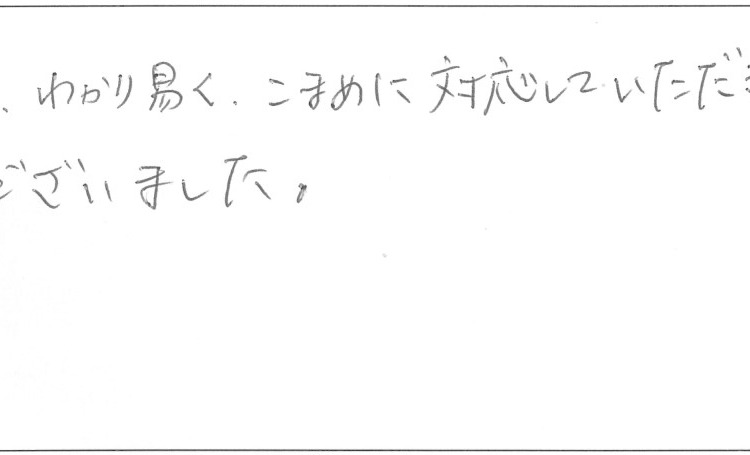 、わかり易く、こまめに対応していただき
ございました。